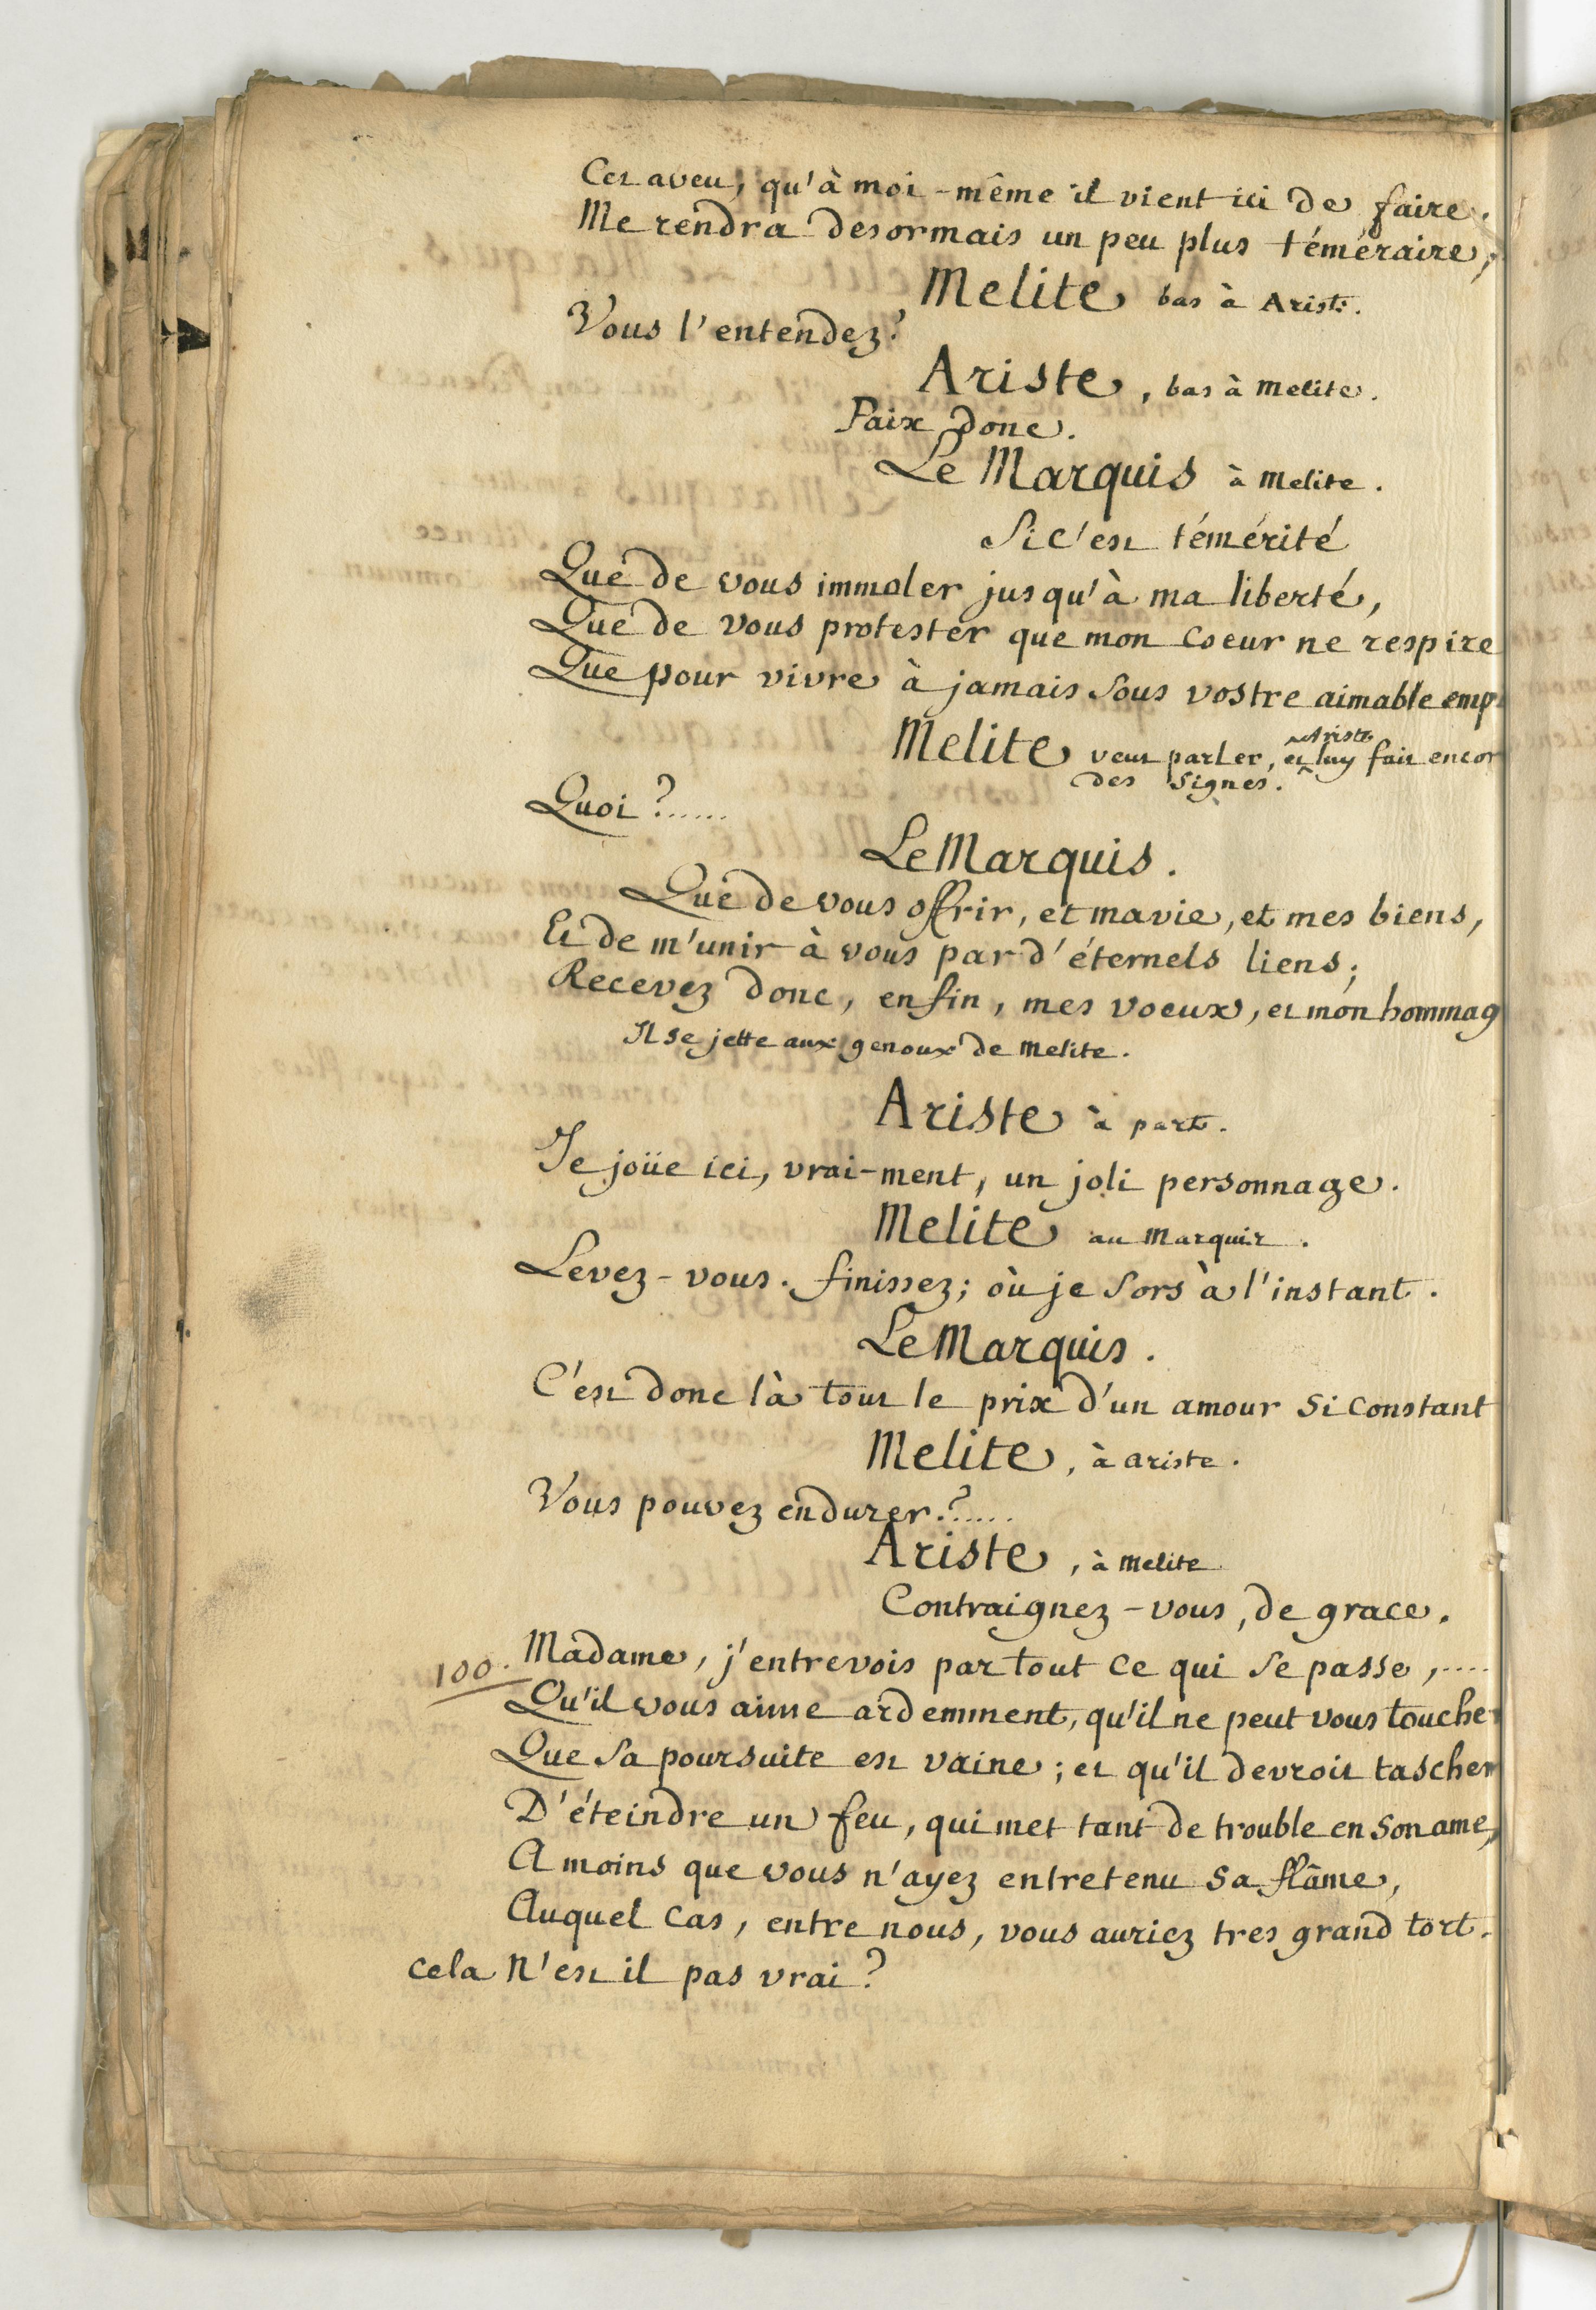 Cet aveu, qu'à moi-même il vient ici de faire.
Me rendra desormais un peu plus téméraire,
Melite bas à Ariste.
Vous l'entendez?
Ariste, bas à Melite.
Paix donc.
Le Marquis à Melite.
Si c'est témérité
Que de vous immoler jusqu'à ma liberté,
Que de vous protester que mon coeur ne respire
Que pour vivre à jamais sous vostre aimable emp
Melite veut parler, et Ariste luy fait encor
des signes.
Quoi ?......
Le Marquis.
Que de vous offrir, et ma vie, et mes biens,
Et de m'unir à vous par d'éternels liens;
Recevez donc, enfin, mes voeux, et mon hommag
Il se jette aux genoux de Melite.
Ariste à part.
Je joüe ici, vrai-ment, un joli personnage.
Melite au Marquis.
Levez-vous. finissez; où je sors à l'instant.
Le Marquis.
C'est donc là tout le prix d'un amour si constant
Melite, à ariste.
Vous pouvez endurer?.....
Ariste, à Melite
Contraignez-vous, de grace.
100. Madame, j'entrevois par tout ce qui se passe,....
Qu'il vous aime ardemment, qu'il ne peut vous touche
Que sa poursuite est vaine; et qu'il devroit tascher
D'éteindre un feu, qui met tant de trouble en son ame,
A moins que vous n'ayez entretenu sa flâme,
Auquel cas, entre nous, vous auriez tres grand tort.
cela N'est il pas vrai?